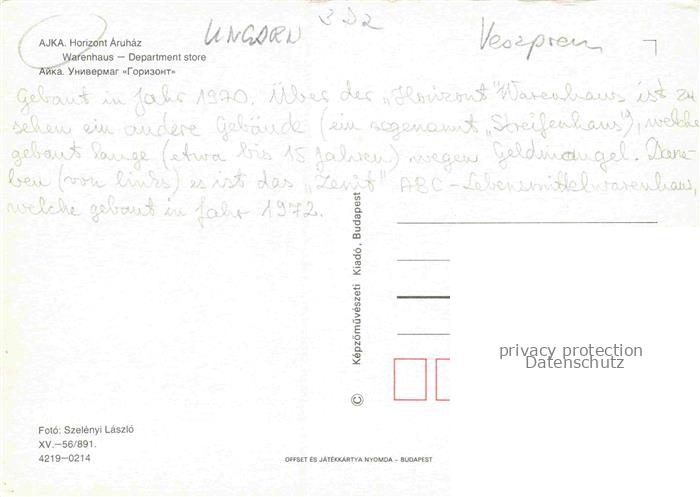 UNGARN 3D2 Veszprem
AJKA. Horizont Áruház
Warenhaus — Department store
Айка. Универмаг «Горизонт»
Gebaut in Jahr 1970. Über der „Horizont" Warenhaus ist zu
sehen ein andere Gebäude (ein sogenannt „Streifenhaus"), welche
gebaut lange (etwa bis 15 Jahren) wegen Geldmangel. Dane-
ben (von links) es ist das „Zenit" ABC-Lebensmittelwarenhaus,
welche gebaut in Jahr 1972.
© Képzőművészeti Kiadó, Budapest
privacy protection
Datenschutz
Fotó: Szelényi László
XV.—56/891.
4219—0214
OFFSET ÉS JÁTÉKKÁRTYA NYOMDA – BUDAPEST